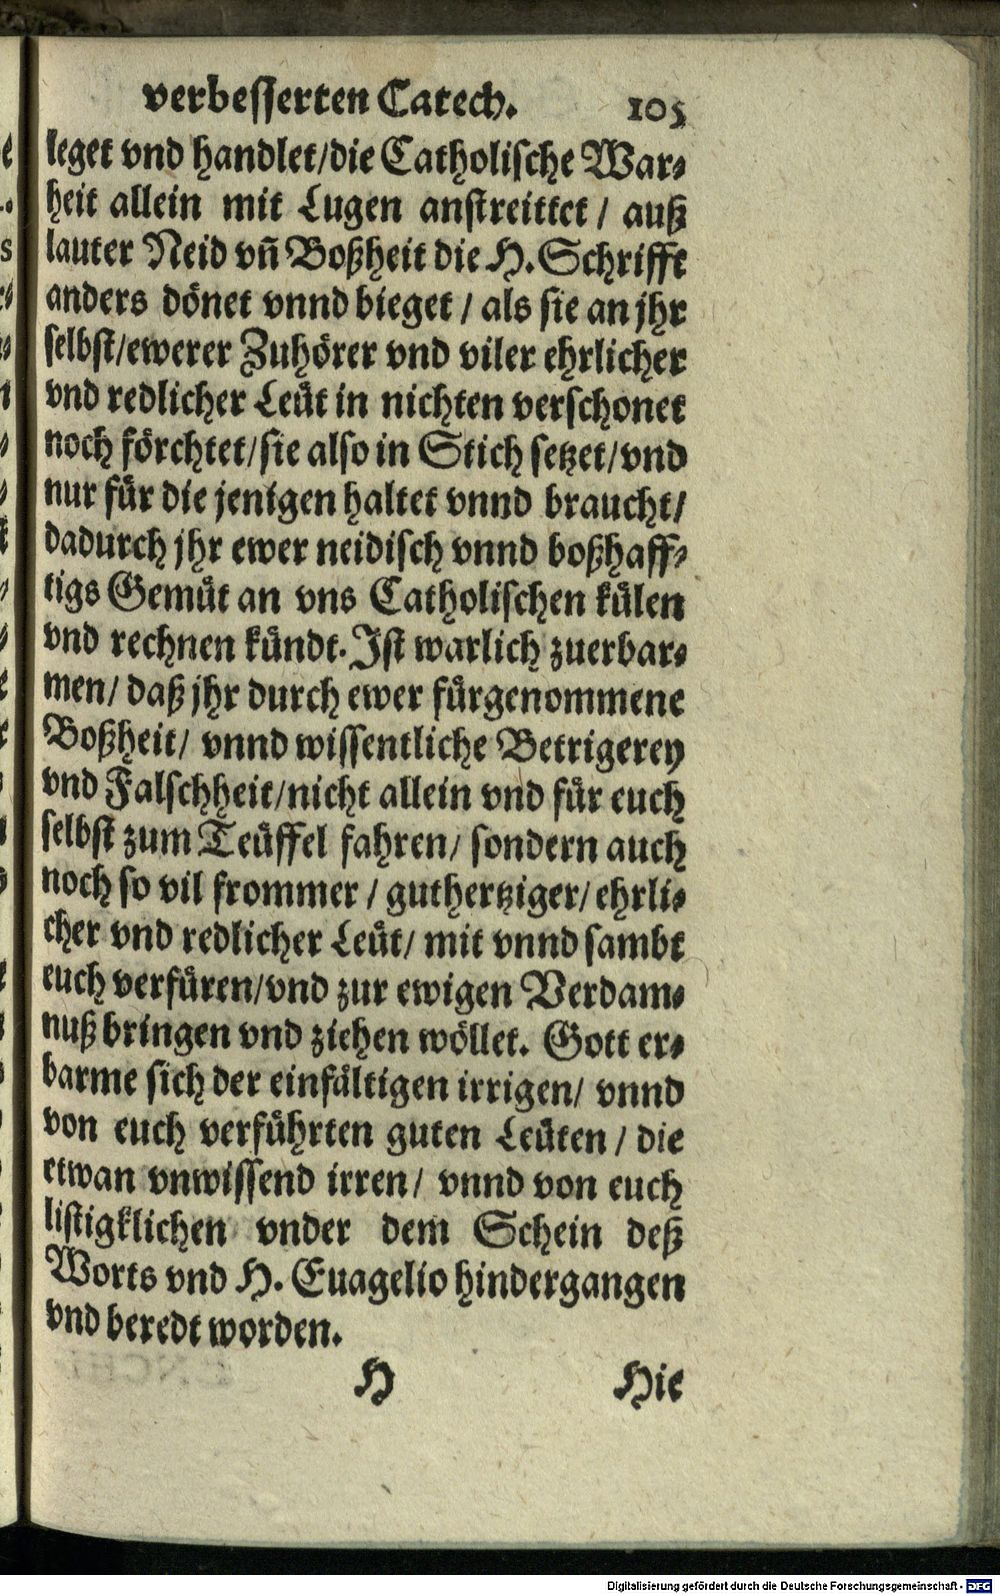 verbesserten Catech. 105
leget vnd handlet/die Catholische War⸗
heit allein mit Lugen anstreittet / auß
lauter Neid vñ Boßheit die H. Schrifft
anders dönet vnnd bieget / als sie an jhr
selbst/ewerer Zuhörer vnd viler ehrlicher
vnd redlicher Leüt in nichten verschonet
noch förchtet/sie also in Stich setzet/vnd
nur für die jenigen haltet vnnd braucht/
dadurch jhr ewer neidisch vnnd boßhaff⸗
tigs Gemüt an vns Catholischen külen
vnd rechnen kündt. Ist warlich zuerbar⸗
men/ daß jhr durch ewer fürgenommene
Boßheit/ vnnd wissentliche Betrigerey
vnd Falschheit/nicht allein vnd für euch
selbst zum Teüffel fahren/ sondern auch
noch so vil frommer / guthertziger/ ehrli⸗
cher vnd redlicher Leüt/ mit vnnd sambt
euch verfüren/vnd zur ewigen Verdam⸗
nuß bringen vnd ziehen wöllet. Gott er⸗
barme sich der einfältigen irrigen/ vnnd
von euch verführten guten Leüten / die
etwan vnwissend irren/ vnnd von euch
listigklichen vnder dem Schein deß
Worts vnd H. Euagelio hindergangen
vnd beredt worden.
H Hie
Digitalisierung gefördert durch die Deutsche Forschungsgemeinschaft - DFG